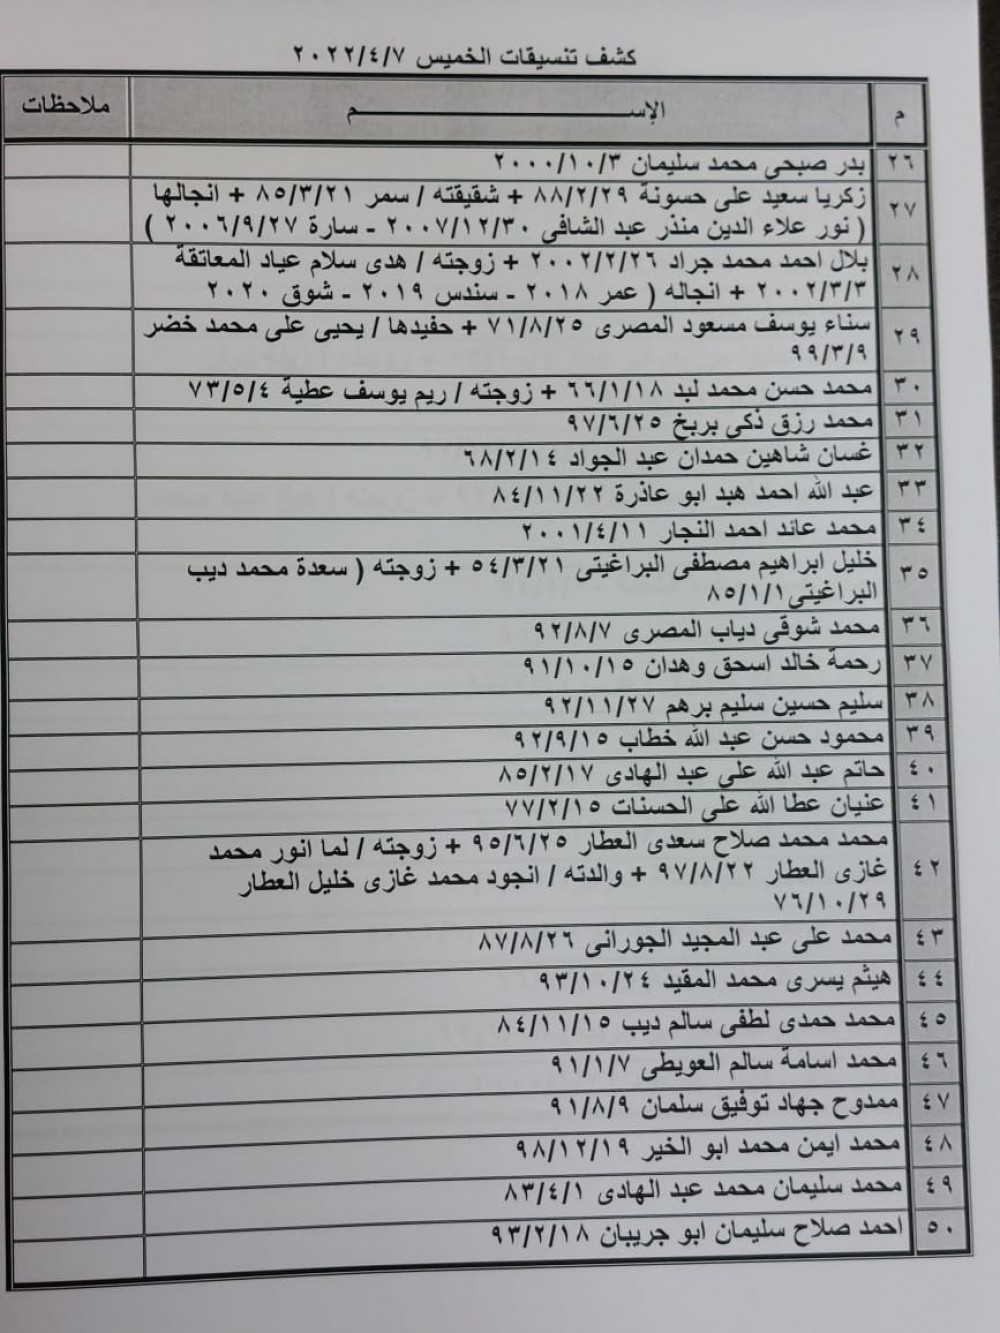 كشف تنسيقات الخميس ٢٠٢٢/٤/٧
م الإســـــــــــــــــــــــم ملاحظات
٢٦ بدر صبحى محمد سليمان ٢٠٠٠/١٠/٣
٢٧ زكريا سعيد على حسونة ٨٨/٢/٢٩ + شقيقته / سمر ٨٥/٣/٢١ + انجالها
( نور علاء الدين منذر عبد الشافى ٢٠٠٧/١٢/٣٠ - سارة ٢٠٠٦/٩/٢٧ )
٢٨ بلال احمد محمد جراد ٢٠٠٢/٢/٢٦ + زوجته / هدى سلام عياد المعاتقة
٢٠٠٢/٣/٣ + انجاله ( عمر ٢٠١٨ - سندس ٢٠١٩ - شوق ٢٠٢٠
٢٩ سناء يوسف مسعود المصرى ٧١/٨/٢٥ + حفيدها / يحيى على محمد خضر
٩٩/٣/٩
٣٠ محمد حسن محمد لبد ٦٦/١/١٨ + زوجته / ريم يوسف عطية ٧٣/٥/٤
٣١ محمد رزق ذكى بربخ ٩٧/٦/٢٥
٣٢ غسان شاهين حمدان عبد الجواد ٦٨/٢/١٤
٣٣ عبد الله احمد هبد ابو عاذرة ٨٤/١١/٢٢
٣٤ محمد عائد احمد النجار ٢٠٠١/٤/١١
٣٥ خليل ابراهيم مصطفى البراغيتى ٥٤/٣/٢١ + زوجته ( سعدة محمد ديب
البراغيتى٨٥/١/١
٣٦ محمد شوقى دياب المصرى ٩٢/٨/٧
٣٧ رحمة خالد اسحق وهدان ٩١/١٠/١٥
٣٨ سليم حسين سليم برهم ٩٢/١١/٢٧
٣٩ محمود حسن عبد الله خطاب ٩٢/٩/١٥
٤٠ حاتم عبد الله على عبد الهادى ٨٥/٢/١٧
٤١ عنيان عطا الله على الحسنات ٧٧/٢/١٥
٤٢ محمد محمد صلاح سعدى العطار ٩٥/٦/٢٥ + زوجته / لما انور محمد
غازى العطار ٩٧/٨/٢٢ + والدته / انجود محمد غازى خليل العطار
٧٦/١٠/٢٩
٤٣ محمد على عبد المجيد الجورانى ٨٧/٨/٢٦
٤٤ هيثم يسرى محمد المقيد ٩٣/١٠/٢٤
٤٥ محمد حمدى لطفى سالم ديب ٨٤/١١/١٥
٤٦ محمد اسامة سالم العويطى ٩١/١/٧
٤٧ ممدوح جهاد توفيق سلمان ٩١/٨/٩
٤٨ محمد ايمن محمد ابو الخير ٩٨/١٢/١٩
٤٩ محمد سليمان محمد عبد الهادى ٨٣/٤/١
٥٠ احمد صلاح سليمان ابو جريبان ٩٣/٢/١٨